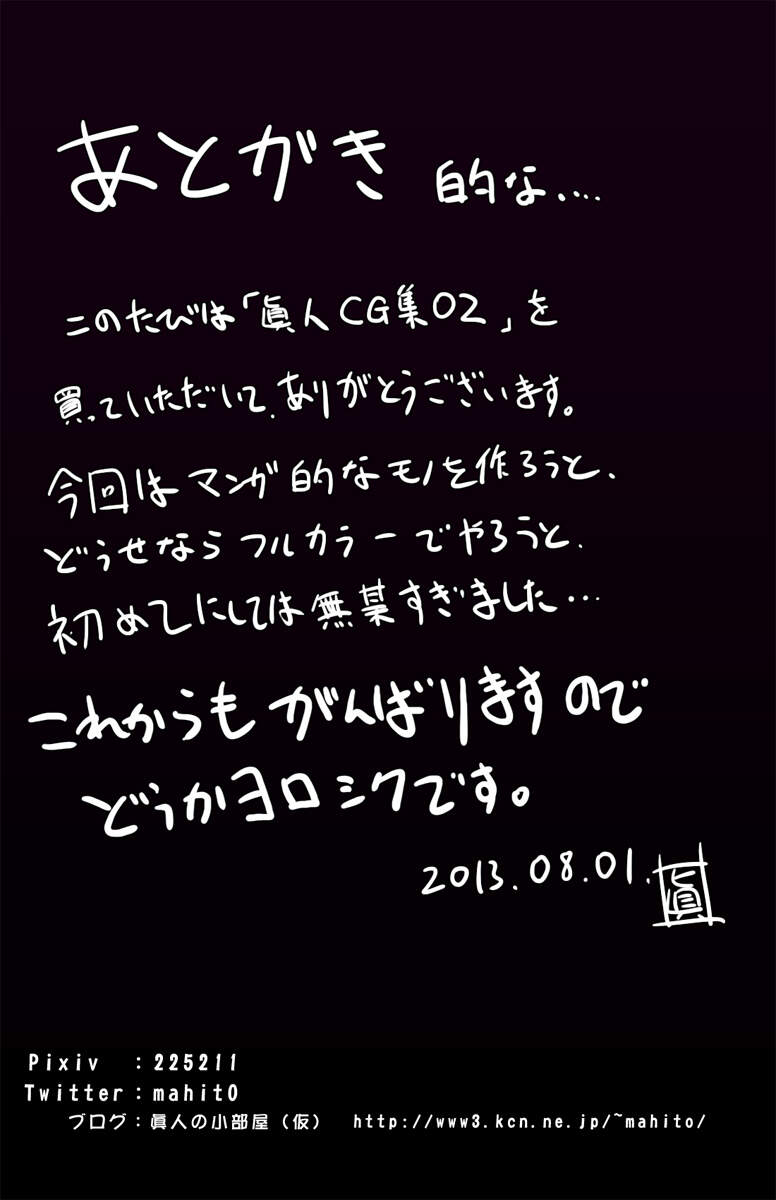 あとがき 的な....
このたびは「眞人CG集02」を
買っていただいて、ありがとうございます。
今回はマンガ的なモノを作ろうと、
どうせならフルカラーでやろうと、
初めてにしては無茶すぎました…
これからもがんばりますので
どうかヨロシクです。
2013.08.01. 眞
Pixiv :225211
Twitter:mahit0
ブログ:眞人の小部屋(仮) http://www3.kcn.ne.jp/~mahito/